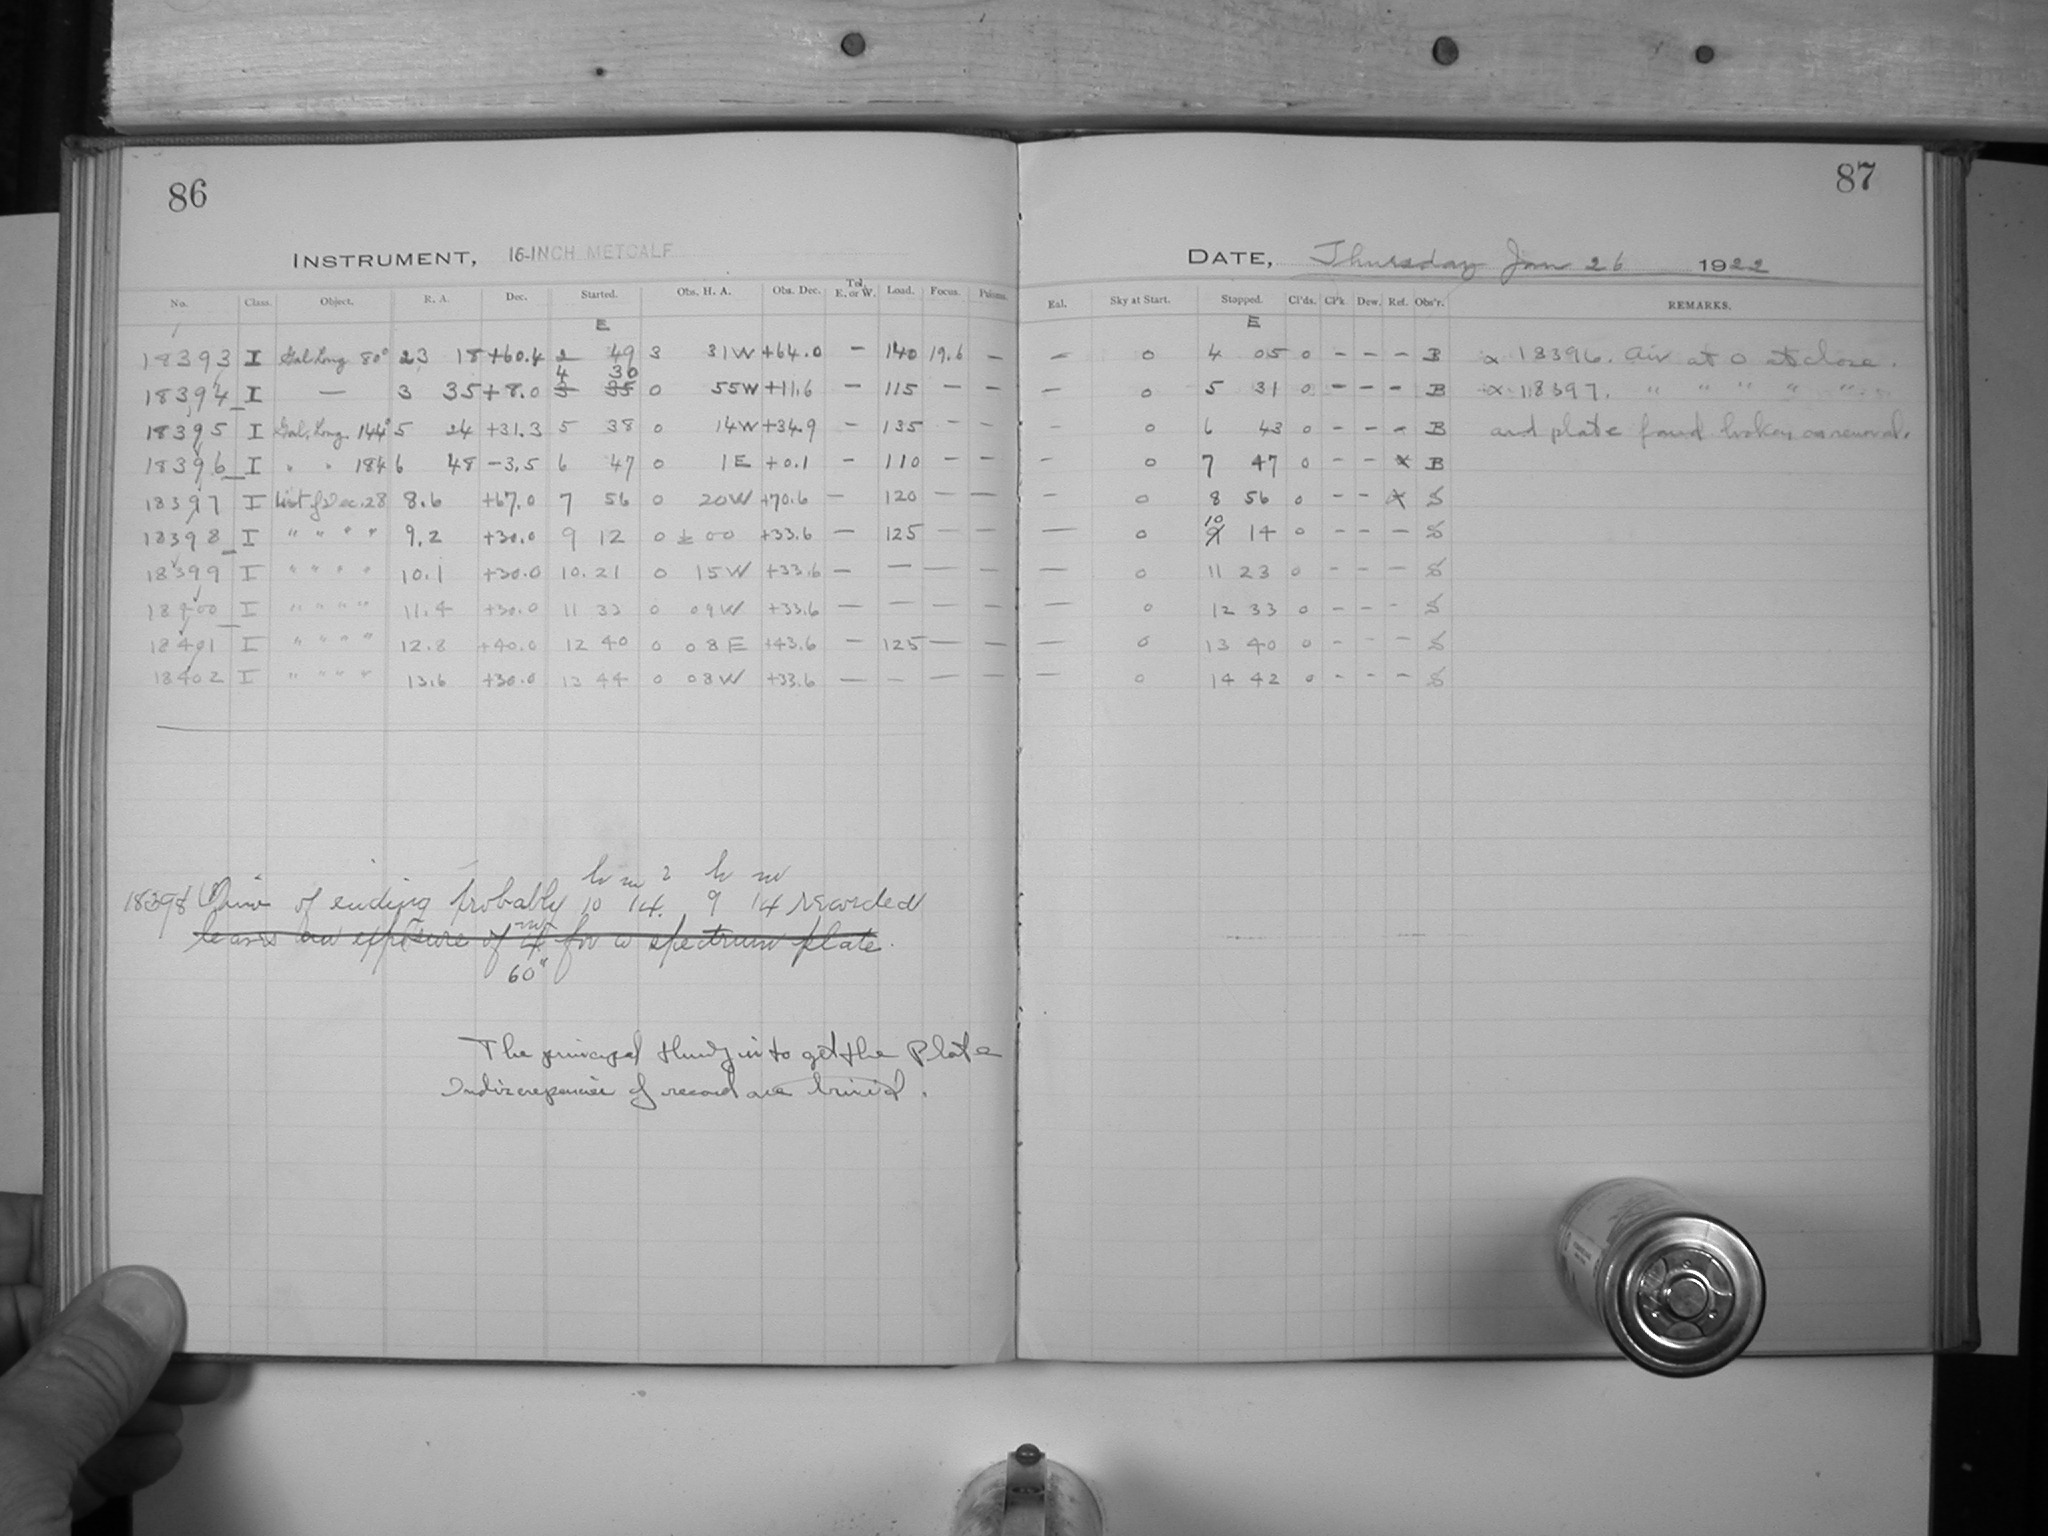 86
87
INSTRUMENT, 16-INCH METCALF
DATE, Thursday Jan 26 1922
No. Class. Object. R. A. Dec. Started. Obs. H. A. Obs. Dec. Tel. E. or W. Load. Focus.
Sky at Start. Stopped. Cl'ds. Cl'k. Dew. Ref. Obs'r. REMARKS.
E E
18393 I Gal. Long. 80° 23 18 +60.4 2 49 3 31W +64.0 – 140 19.6 – – 0 4 05 0 – – – B ∝ 18396. Air at 0 at close.
4 30
18394 I — 3 35 +8.0 3 35 0 55W +11.6 – 115 – – – 0 5 31 0 – – – B ∝ 18397. " " " " "
18395 I Gal. Long. 144° 5 24 +31.3 5 38 0 14W +34.9 – 135 – – – 0 6 43 0 – – – B and plate found broken on removal.
18396 I " " 184 6 48 –3.5 6 47 0 1E +0.1 – 110 – – – 0 7 47 0 – – x B
18397 I List of Dec. 28 8.6 +67.0 7 56 0 20W +70.6 – 120 – – – 0 8 56 0 – – x S
10
18398 I " " " " 9.2 +30.0 9 12 0 ±00 +33.6 – 125 – – – 0 9 14 0 – – – S
18399 I " " " " 10.1 +30.0 10.21 0 15W +33.6 – – – – – 0 11 23 0 – – – S
18400 I " " " " 11.4 +30.0 11 33 0 09W +33.6 – – – – – 0 12 33 0 – – – S
18401 I " " " " 12.8 +40.0 12 40 0 08E +43.6 – 125 – – – 0 13 40 0 – – – S
18402 I " " " " 13.6 +30.0 13 44 0 08W +33.6 – – – – – 0 14 42 0 – – – S
h m ? h m
18398 Time of ending probably 10 14. 9 14 recorded
leaves an exposure of 4 for a spectrum plate.
60
The principal thing is to get the Plate
discrepancies of record are trivial.